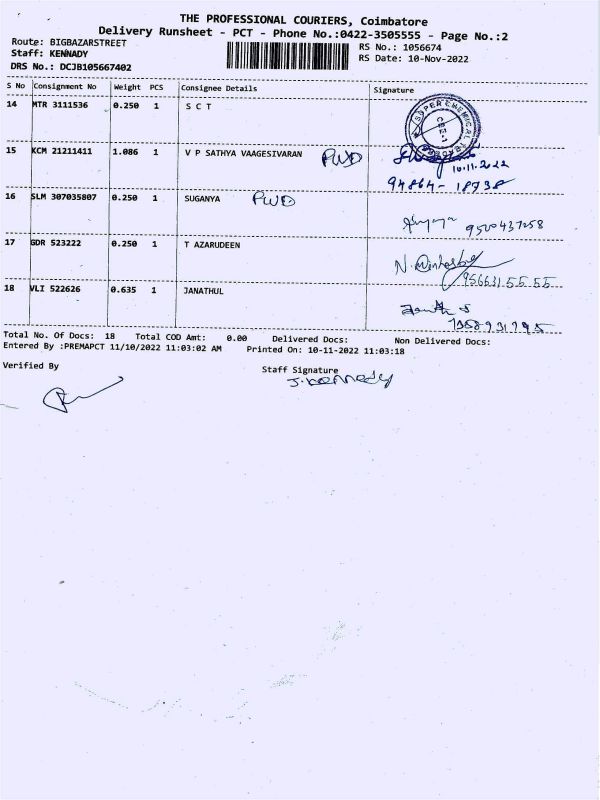 THE PROFESSIONAL COURIERS, Coimbatore
Delivery Runsheet - PCT - Phone No.:0422-3505555 - Page No.:2
Route: BIGBAZARSTREET
Staff: KENNADY
DRS No.: DCJB105667402
RS No.: 1056674
RS Date: 10-Nov-2022
S No Consignment No Weight PCS Consignee Details Signature
14 MTR 3111536 0.250 1 S C T
SUPER CHEMICAL
15 KCM 21211411 1.086 1 V P SATHYA VAAGESIVARAN PWD
10.11.2022
94864-18738
16 SLM 307035807 0.250 1 SUGANYA PWD
9500437058
17 GDR 523222 0.250 1 T AZARUDEEN
9566315555
18 VLI 522626 0.635 1 JANATHUL
Total No. Of Docs: 18 Total COD Amt: 0.00 Delivered Docs: Non Delivered Docs:
Entered By :PREMAPCT 11/10/2022 11:03:02 AM Printed On: 10-11-2022 11:03:18
Verified By
Staff Signature
J. Kennedy